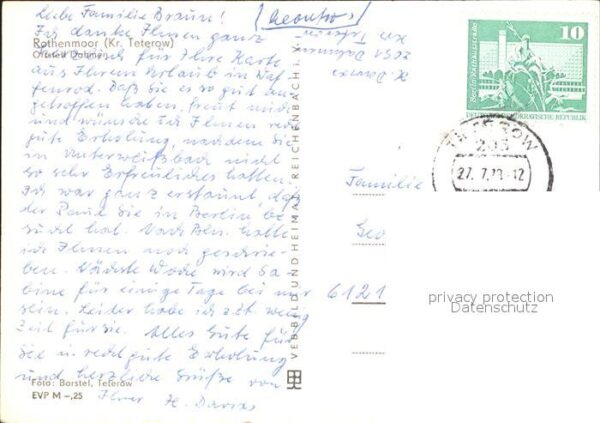 Liebe Familie Braun!
Ich danke Ihnen ganz
Rothenmoor (Kr. Teterow)
Ortsteil Dahmen
für Ihre Karte
aus Ihrem Urlaub in
Daß Sie es so gut
getroffen haben, freut mich
und wünsche ich Ihnen
gute Erholung, nachdem Sie
in Unterweißbach nicht
so sehr Erfreuliches hatten.
Ich war ganz erstaunt, daß
der Sie in Berlin be
sucht hat. Nach hatte
ich Ihnen noch geschrie
ben. Nächste Woche wird Sa
bine für einige Tage bei mir
sein. Leider habe ich z.Zt. wenig
Zeit für sie. Alles Gute für
Sie u. recht gute Erholung
und herzliche Grüße von
Foto: Borstel, Teterow
EVP M -,25
Ihrer H.
VEB BILD UND HEIMAT REICHENBACH i. V.
Dahmen
Kr. Teterow
10
DEUTSCHE DEMOKRATISCHE REPUBLIK
TETEROW
27. 7.79-12
Familie
Geo
6121
privacy protection
Datenschutz